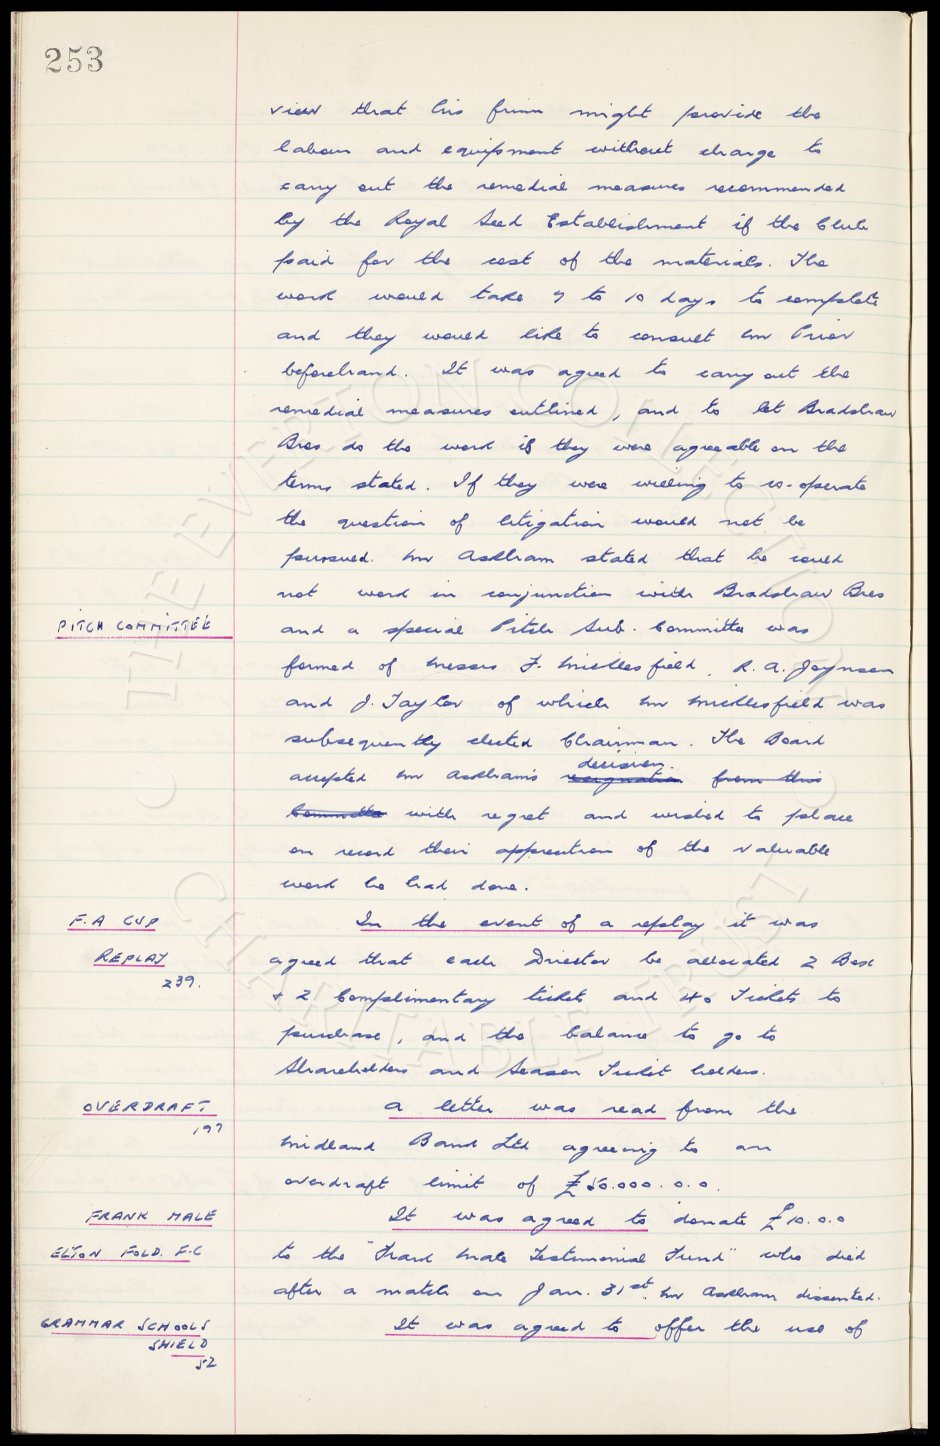 253
view that his firm might provide the
labour and equipment without charge to
carry out the remedial measures recommended
by the Royal Seed Establishment if the Club
paid for the cost of the materials. The
work would take 7 to 10 days to complete
and they would like to consult Mr Prior
beforehand. It was agreed to carry out the
remedial measures outlined, and to let Bradshaw
Bros do the work if they were agreeable on the
terms stated. If they were willing to co-operate
the question of litigation would not be
pursued. Mr Askham stated that he could
not work in conjunction with Bradshaw Bros
PITCH COMMITTEE
and a special Pitch Sub-Committee was
formed of Messrs F. Micklesfield, R. A. Joynson
and J. Taylor of which Mr Micklesfield was
subsequently elected Chairman. The Board
decision.
accepted Mr Askham's resignation from this
Committee with regret and wished to place
on record their appreciation of the valuable
work he had done.
F.A CUP
REPLAY
239.
In the event of a replay it was
agreed that each Director be allocated 2 Box
+ 2 Complimentary tickets and 40 Tickets to
purchase, and the balance to go to
Shareholders and Season Ticket holders.
OVERDRAFT
197
A letter was read from the
Midland Bank Ltd agreeing to an
overdraft limit of £50.000.0.0.
FRANK MALE
ELTON FOLD. F.C
It was agreed to donate £10.0.0
to the "Frank Male Testimonial Fund" who died
after a match on Jan. 31st. Mr Askham dissented.
GRAMMAR SCHOOLS
SHIELD
52
It was agreed to offer the use of
THE EVERTON COLLECTION
CHARITABLE TRUST